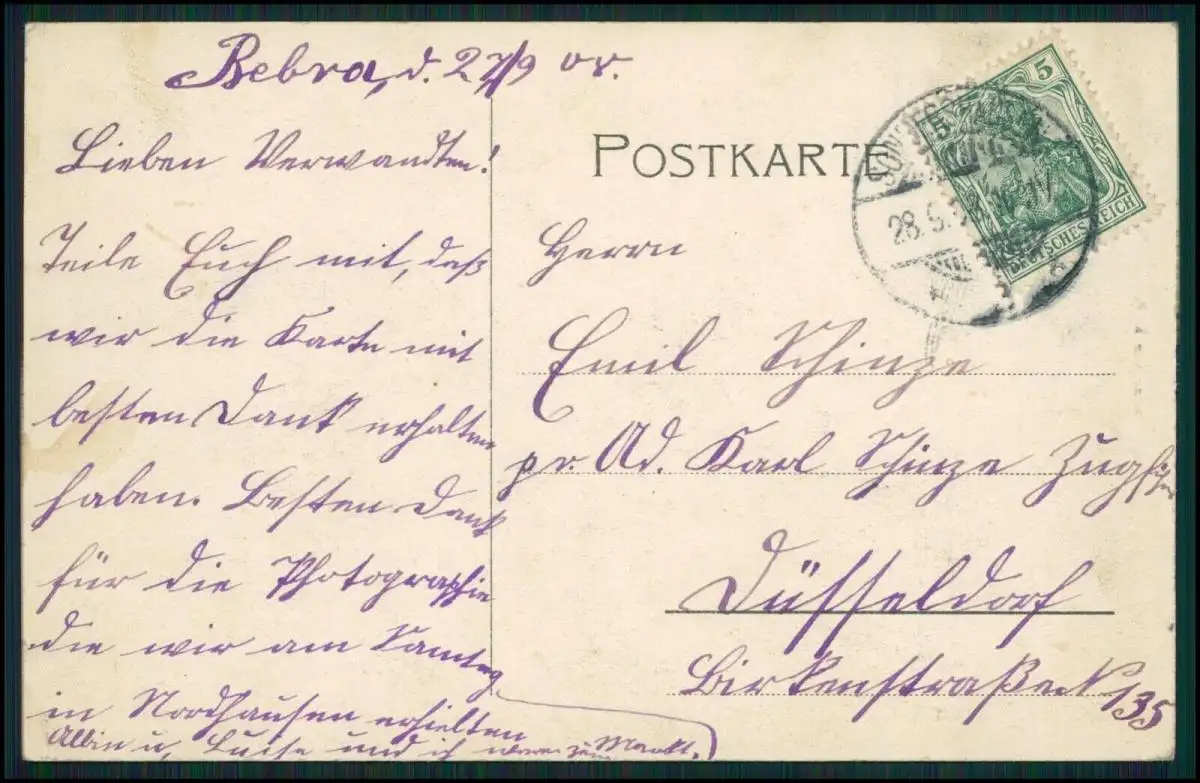 Bebra, d. 27/9 08.
Lieben Verwandten!
Teile Euch mit, daß
wir die Karte mit
besten Dank erhalten
haben. Besten Dank
für die Photographie
die wir am Samtag
in Nordhausen erhielten
Albin u. Luise und ich waren zum Markt.
POSTKARTE
5 5
DEUTSCHES REICH
28.9.
Herrn
Emil Schinze
pr. Ad. Karl Schinze
Düsseldorf
Birkenstraße № 135